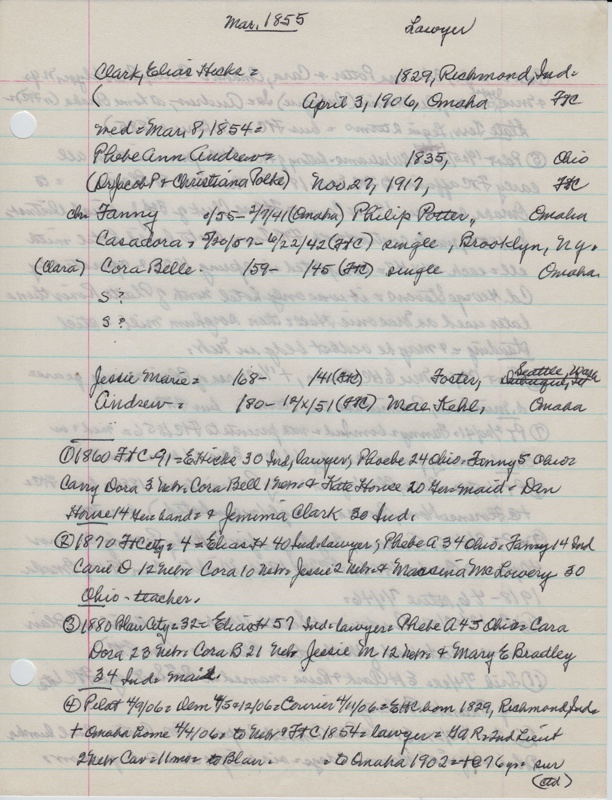 Mar. 1855 Lawyer
Clark, Elias Hicks = 1829, Richmond, Ind.
( April 3, 1906, Omaha FtC
med = Mar. 8, 1854 =
Phebe Ann Andrews 1835, Ohio
(Dr Jacob P + Christiana Polke) Nov 27, 1917, FtC
chn Fanny /55 - 2/7/41 (Omaha) Philip Potter, Omaha
Casadora = 5/20/57 - 6/22/42 (FtC) single, Brooklyn, N.Y.
(Clara) Cora Belle. /59 - /45 (FtC) single Omaha.
S ?
S ?
Jessie Marie = /68 - /41 (FtC) Foster, Seattle, Wash
Andrew = /80 - /51 (FtC) Mae Kehl, Omaha
① 1860 FtC 91 = E Hicks 30 Ind, lawyer, Phoebe 24 Ohio - Fanny 5 Ohio =
Carry Dora 3 Nebr. Cora Bell 1 Nebr. & Kate House 20 Ger = maid - Dan
House 14 Ger = hand = & Jemima Clark 30 Ind.
② 1870 FtCity = 4 = Elias H 40 Ind = lawyer, Phebe A 34 Ohio. Fanny 14 Ind
Carie D 12 Nebr. Cora 10 Nebr. Jessie 2 Nebr. & McLowery 30
Ohio - teacher.
③ 1880 Blair City = 32 = Elias H 57 Ind = lawyer = Phebe A 45 Ohio = Cara
Dora 23 Nebr. Cora B 21 Nebr. Jessie M 12 Nebr. & Mary E Bradley
34 Ind = maid.
④ Pilot 4/9/06 = Dem 4/5 + 12/06 = Courier 4/11/06 = EHC born 1829, Richmond, Ind =
+ Omaha home 4/4/06 = to Nebr & FtC 1854 = lawyer = GAR = 2nd Lieut
2 Nebr Cav = 11 mos = to Blair. = to Omaha 1902 = 76 yrs = sur
(ctd)